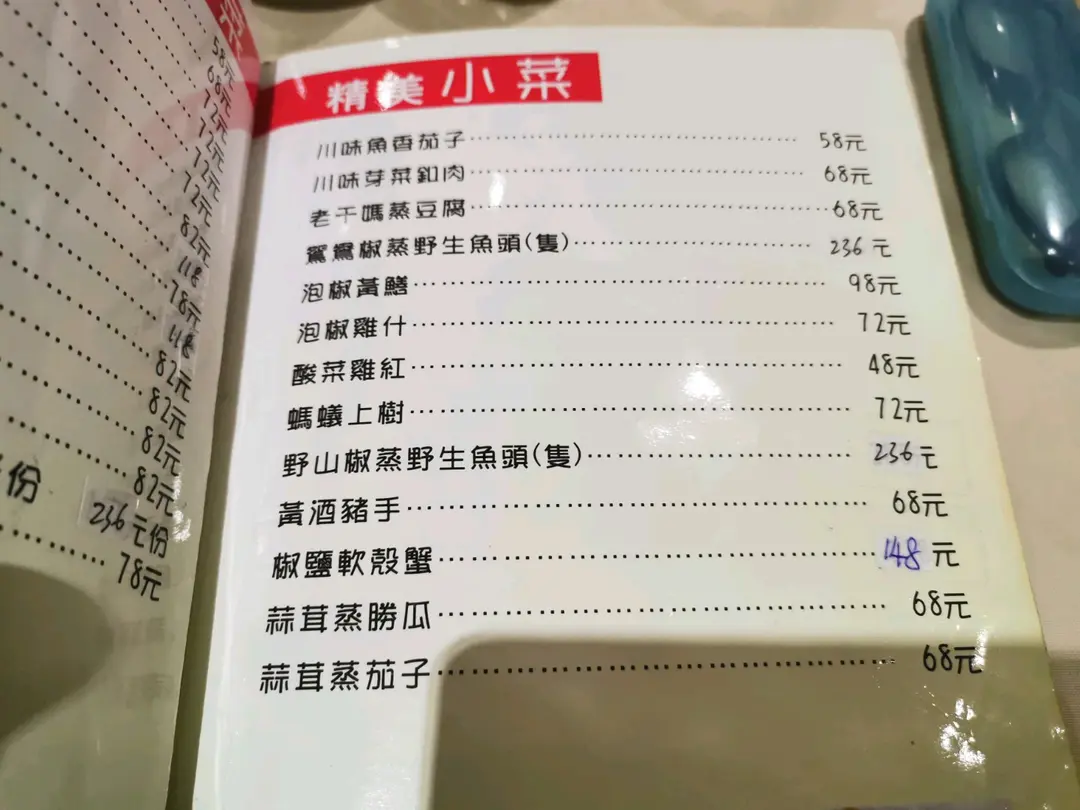 58元
68元
72元
72元
72元
72元
82元
118
78元
118
82元
82元
82元
82元
份 236元份
78元
精美小菜
川味魚香茄子 58元
川味芽菜釦肉 68元
老干媽蒸豆腐 68元
鴛鴦椒蒸野生魚頭(隻) 236元
泡椒黃鱔 98元
泡椒雞什 72元
酸菜雞紅 48元
螞蟻上樹 72元
野山椒蒸野生魚頭(隻) 236元
黃酒豬手 68元
椒鹽軟殼蟹 148元
蒜茸蒸勝瓜 68元
蒜茸蒸茄子 68元